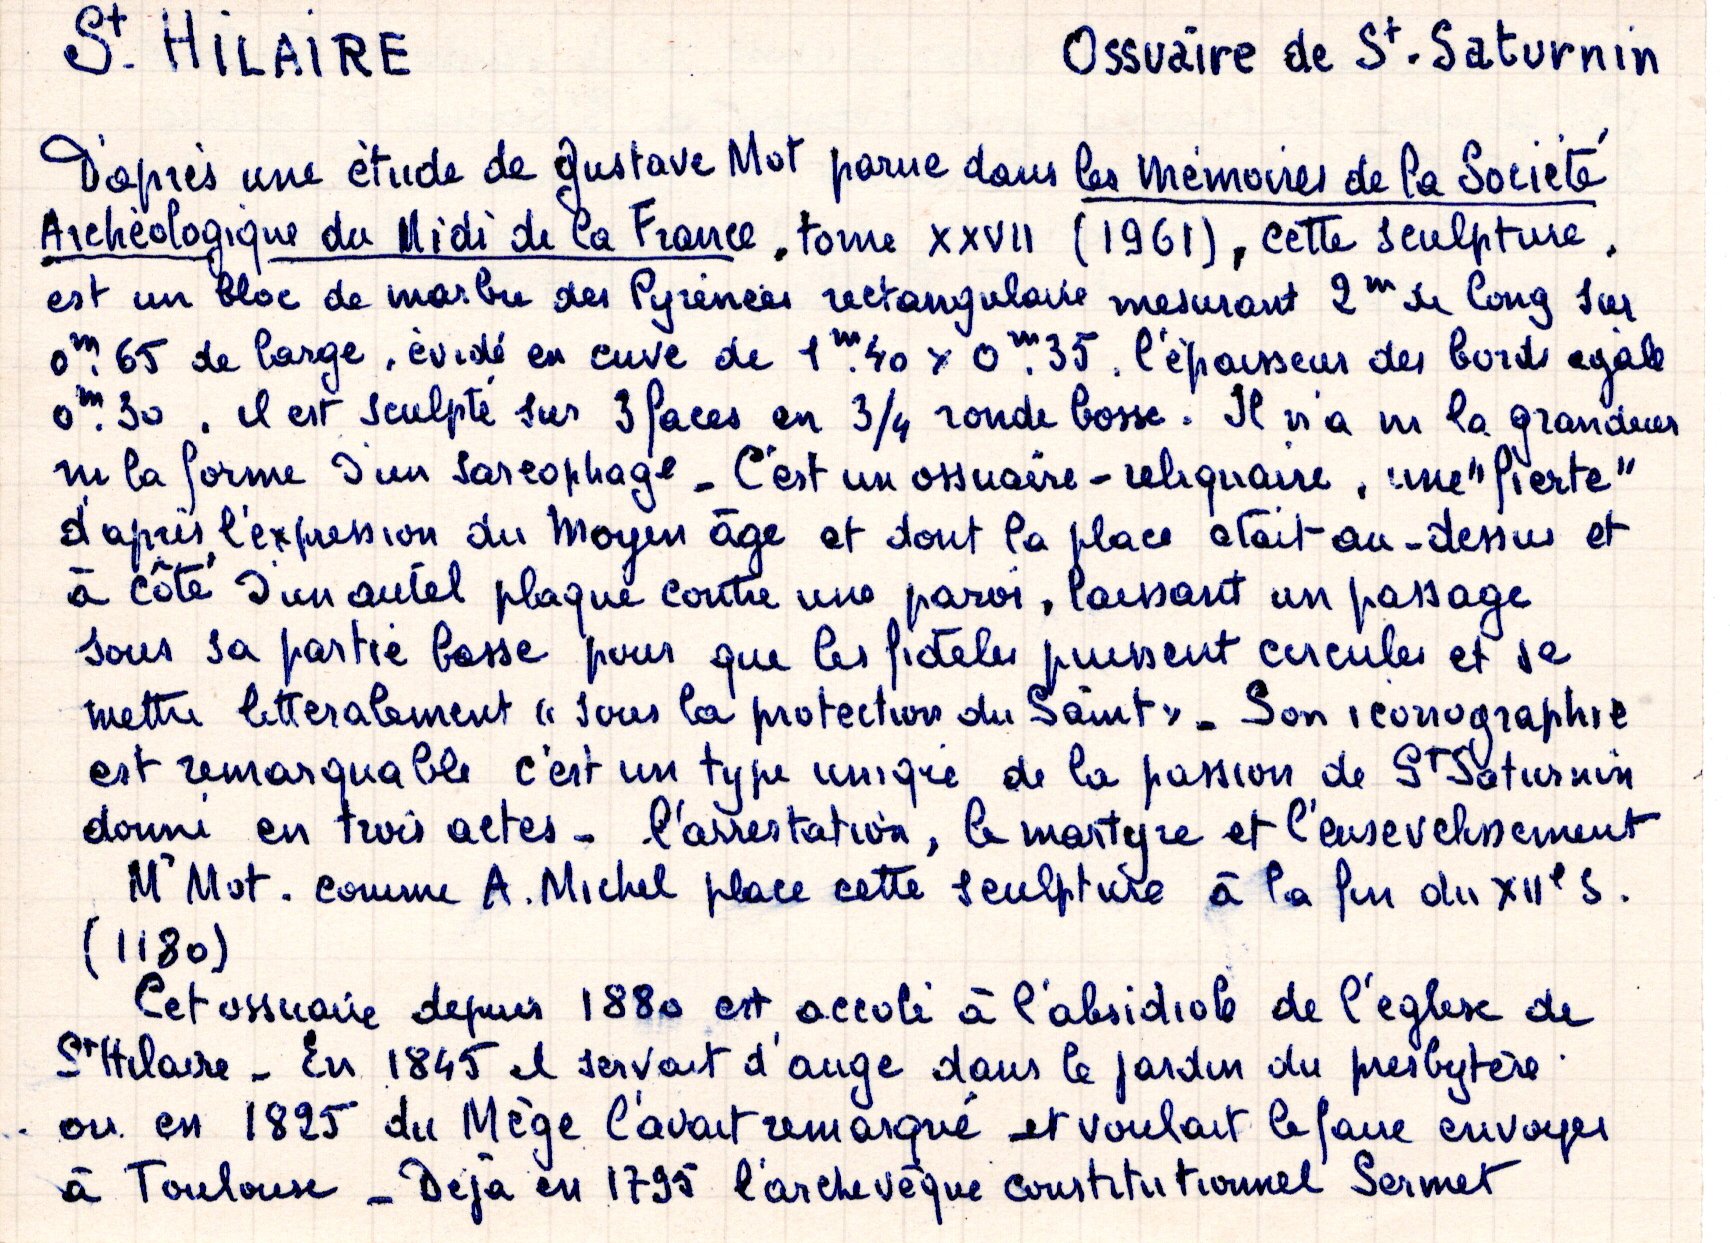 St. HILAIRE Ossuaire de St. Saturnin
D'après une étude de Gustave Mot parue dans les Mémoires de la Société
Archéologique du Midi de la France, tome XXVII (1961), cette sculpture,
est un bloc de marbre des Pyrénées rectangulaire mesurant 2m de long sur
0m.65 de large, évidé en cuve de 1m.40 x 0m.35. l'épaisseur des bords égale
0m.30. il est sculpté sur 3 faces en 3/4 ronde bosse. Il n'a ni la grandeur
ni la forme d'un sarcophage - C'est un ossuaire-reliquaire, une "fierte"
d'après l'expression du Moyen âge et dont la place était au-dessus et
à côté d'un autel plaqué contre une paroi, laissant un passage
sous sa partie basse pour que les fidèles puissent circuler et se
mettre littéralement « sous la protection du Saint » - Son iconographie
est remarquable c'est un type unique de la passion de St Saturnin
donné en trois actes - l'arrestation, le martyre et l'ensevelissement
Mr Mot. comme A. Michel place cette sculpture à la fin du XIIe s.
(1180)
Cet ossuaire depuis 1880 est accolé à l'absidiole de l'église de
St Hilaire - En 1845 il servait d'auge dans le jardin du presbytère
ou en 1825 du Mège l'avait remarqué et voulait le faire envoyer
à Toulouse - Déjà en 1795 l'archevêque constitutionnel Sermet